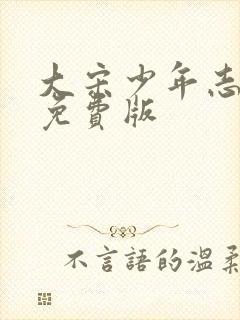 大宋少年志
免費版
不言語的温柔